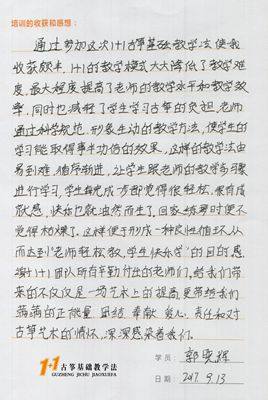 培训的收获和感想：
通过参加这次1+1古筝基础教学法使我
收获颇丰，1+1的教学模式大大降低了教学难
度，最大程度提高了老师的教学水平和教学效
率，同时也减轻了学生学习古筝的负担，老师
通过科学规范，形象生动的教学方法，使学生的
学习能取得事半功倍的效果，这样的教学法由
易到难，循序渐进，让学生跟老师的教学步骤
进行学习，学生每完成一部都觉得很轻松，很有成
就感，快乐也就油然而生了，回家练习时便不
觉得枯燥了。这样便于形成一种良性循环，从
而达到"老师轻松教，学生快乐学"的目的。感
谢1+1团队所有辛勤付出的老师们，给我们带
来的不仅仅是一场艺术上的提高，更带给我们
满满的正能量，团结 奉献 爱心 责任和对
古筝艺术的情怀，深深感染着我们。
1+1古筝基础教学法
GUZHENG JICHU JIAOXUEFA
学员：郭雯辉
日期：2017.9.13